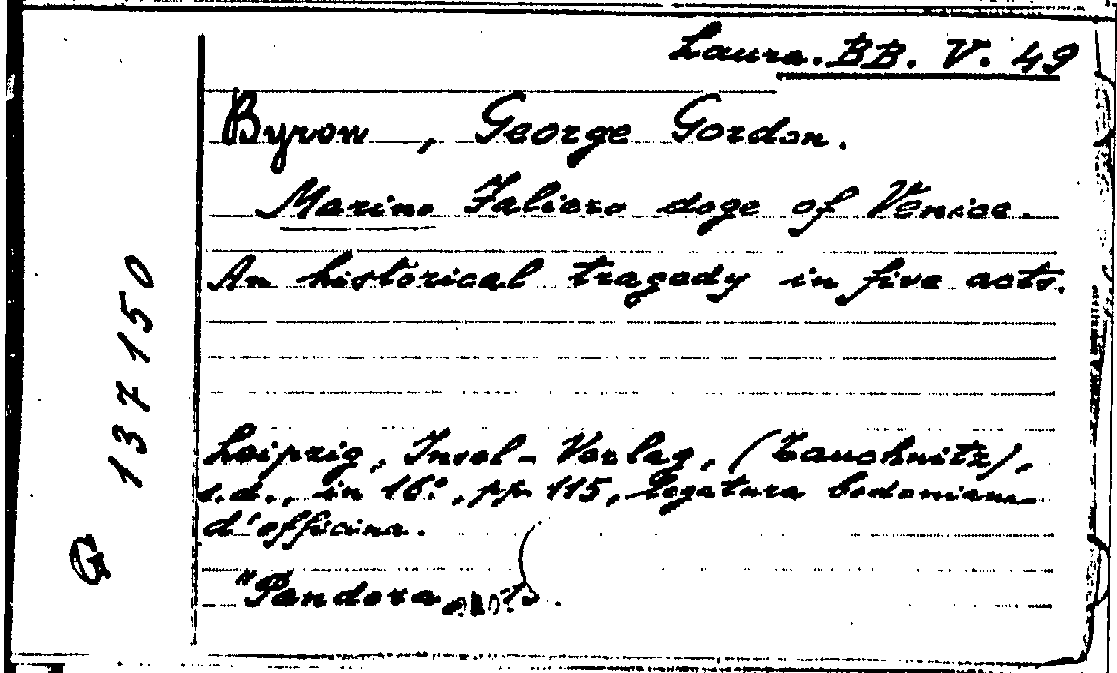 Laura. BB. V. 49
Byron, George Gordon.
Marino Faliero doge of Venice.
An historical tragedy in five acts.
Leipzig, Insel-Verlag, (Tauchnitz),
s.d., in 16°, pp. 115, legatura bodoniana
d'officina.
"Pandora
G 137150